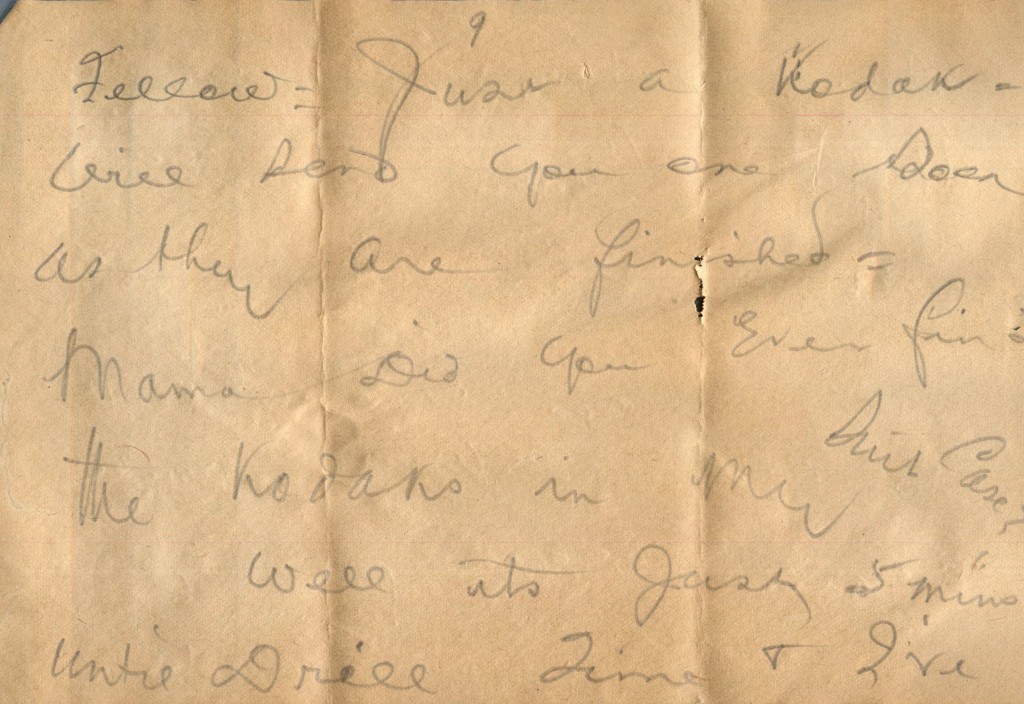 9
Fellow = Just a Kodak -
Will send you one soon
as they are finished =
Mama Did you Ever find
the Kodaks in My Suit Case?
Well its Just 5 mins
Until Drill Time + I've